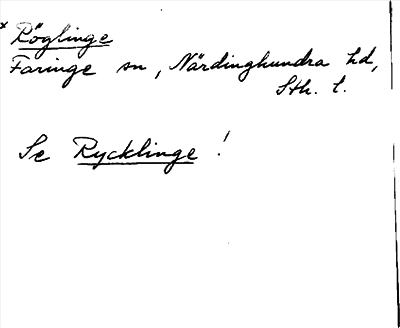 x Röglinge
Faringe sn, Närdinghundra hd,
Sth. l.
Se Rycklinge!